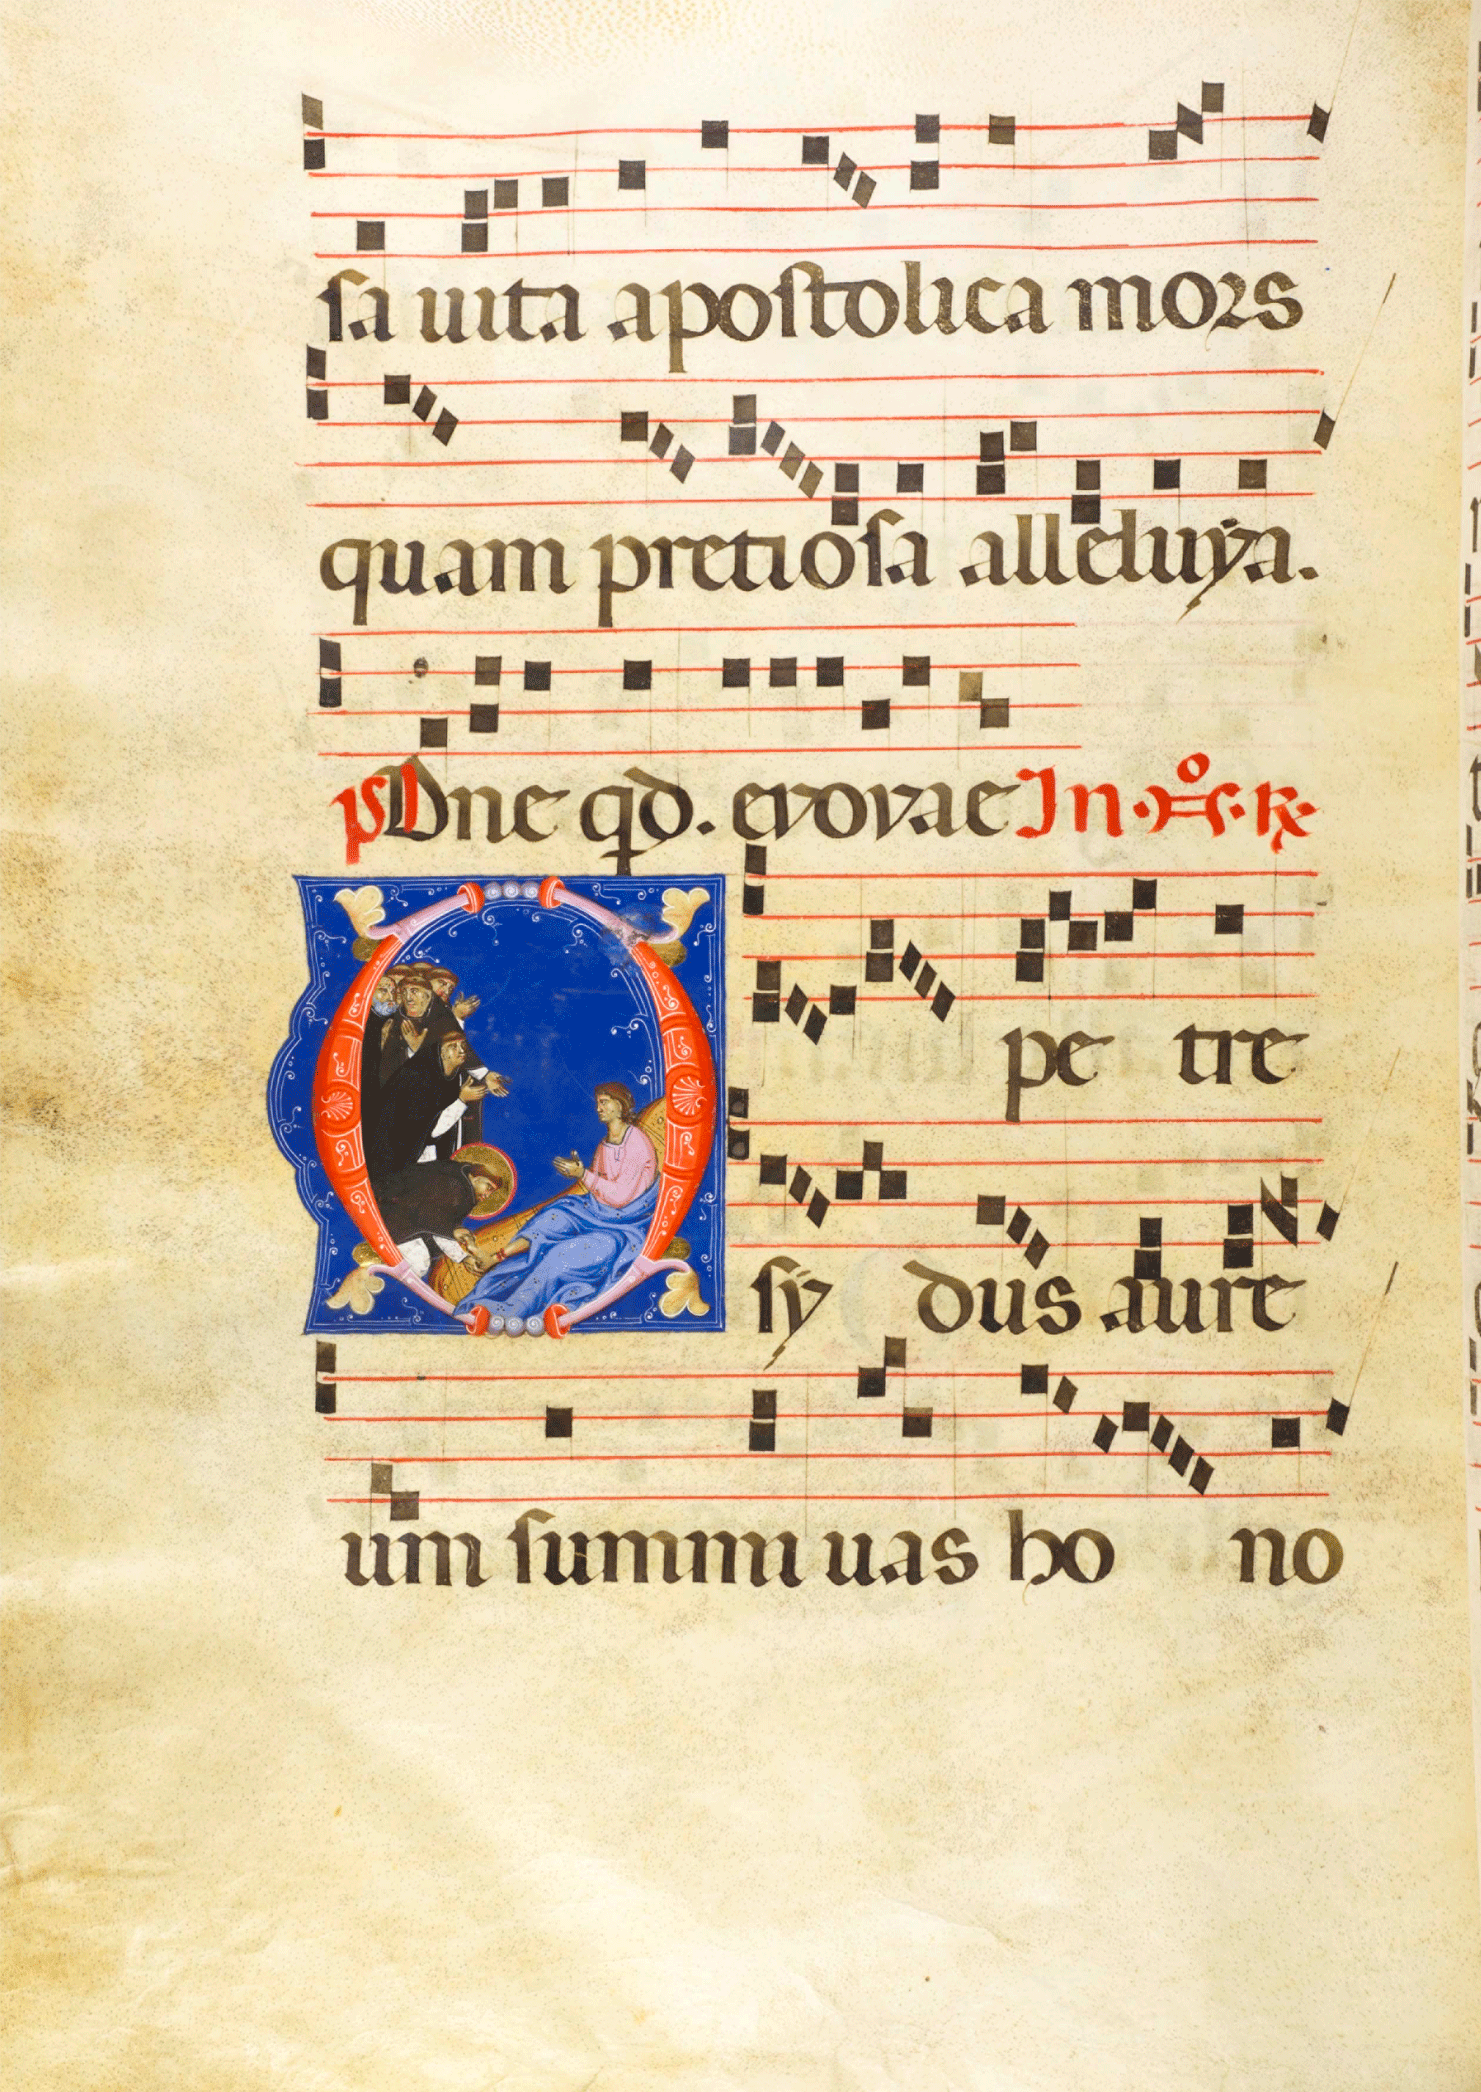 sa uita apostolica mors
quam pretiosa alleluÿa.
ps Dne qd. evovae In
O petre
sÿ dus aure
um summi uas ho no